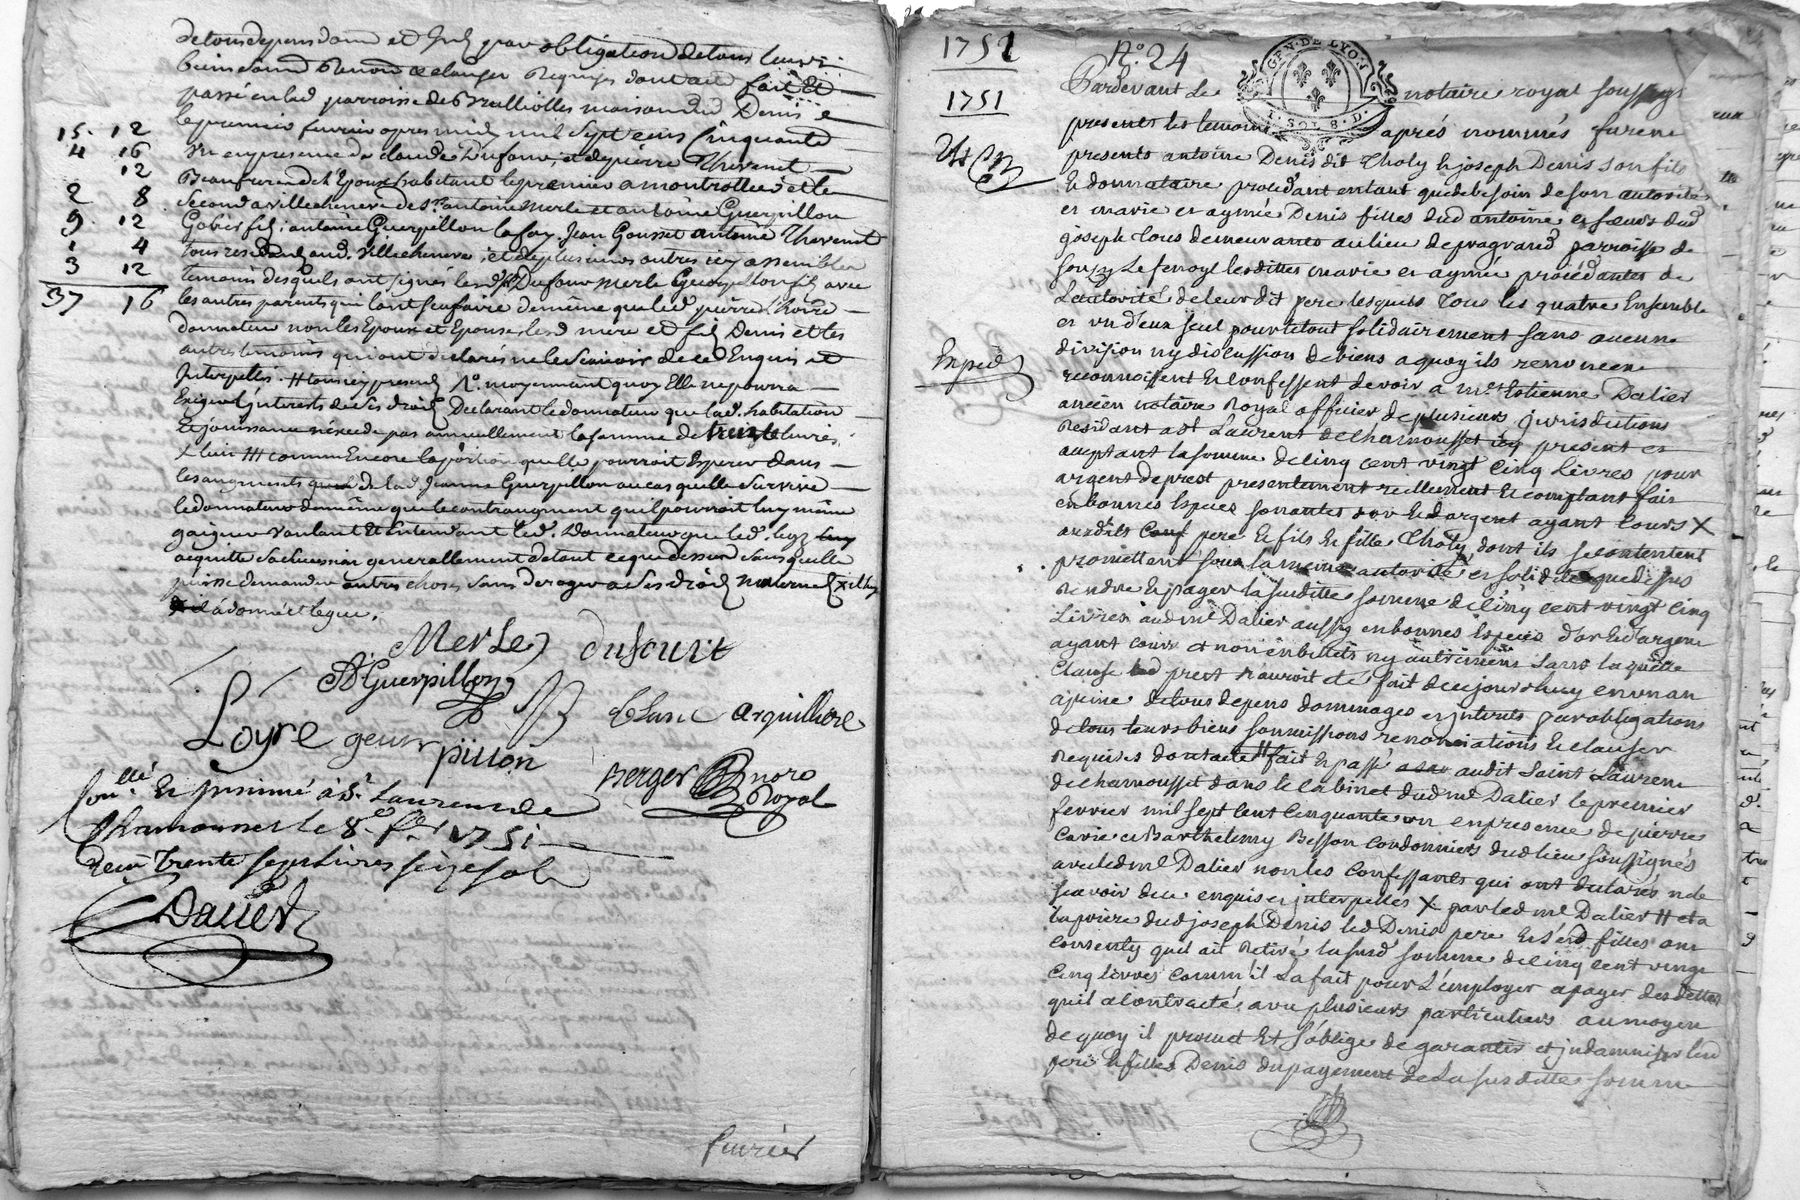 detous depens dom et Jnt par obligation detous leurs
biens soum Renon et clauses Requises dont acte fait et
passé en lad parroisse de Brulliolles maison dud Denis
le premier fevrier apres midy mil sept cens Cinquante
un en presence de claude Dufour, et de pierre Thevenet
habitant le premier a montrottier et le
second a villecheneve de sr. antoine Merle et antoine Guerpillon
fils antoine Guerpillon Jean Gousset antoine Thevenet
tous resid. aud. Villecheneve, et de plusieurs autres icy assemblés
temoins desquels ont signés led Dufour Merle Guerpillon fils avec
les autres parents qui l'ont sceu faire de meme que led pierre
donnateur non les Epoux et Epouse, led mere et fils Denis et les
autres temoins qui ont declarés ne le scavoir de ce Enquis et
Interpellés. moyennant quoy Elle ne pourra
Exiger Interests de ses droits Declarant le donnateur que lad. habitation
et jouissance n'excede pas annuellement la somme de trente livres
comm Encore la portion qu'elle pourroit Esperer dans
les augments de lad Jeanne Guerpillon au cas qu'elle survive
le donnateur de meme que le contraugment qu'il pourroit luy même
gaigner voulant Et Entendant led. Donnateur que led. legs
acquitte sa succession generallement de tout ce que dessus sans qu'elle
puisse demander autres choses sans deroger a ses droits maternels
a donné et legue.
15. 12
4 16
12
2 8
9. 12
1 4
3 12
37 16
Merle Dufour
A Guerpillon
Blanc Arquilliere
Loyre geurpillon
Berger noro Royal
Conllé Et jnsinué à St. Laurent de
Chamousset le 8e. fer 1751
Reçu trente sept livres seize sols
Dalier
fevrier
1751
1751
N.º 24
GEN. DE LYON
1. SOL 8. D.
Expedié
Pardevant Le notaire royal soussigné
presents les temoins aprés nommés furent
presents antoine Denis dit Tholy et joseph Denis son fils
et donnataire procedant entant que de besoin de son autorité
et marie et aymée Denis filles dud antoine et sœurs dud
joseph tous demeurants au lieu de pragrand parroisse de
Souzy Le fenoyl lesdittes marie et aymée procédantes de
L'autorité de leur dit pere lesquels tous les quatre Ensemble
et un d'eux seul pour le tout solidairement sans aucune
division ny discussion de biens a quoy ils renoncent
reconnoissent et confessent devoir a me. Estienne Dalier
ancien notaire Royal officier de plusieurs jurisdictions
Residant a st Laurent de chamousset icy present et
acceptant la somme de cinq cent vingt cinq Livres pour
argent de prest presentement réellement et comptant fait
en bonnes Especes sonantes d'or et d'argent ayant cours X
auxdits Conf pere et fils et filles Tholy dont ils se contentent
promettent sous la meme autorité et solidité que dessus
Rendre et payer la susditte somme de cinq cent vingt cinq
Livres aud me. Dalier aussy en bonnes Especes d'or et d'argent
ayant cours et non en billets ny autrement sans laquelle
Clause led prest n'auroit été fait de ce jourdhuy en un an
apeine de tous depens dommages et interets par obligations
de tous leurs biens soumissions renonciations et clauses
Requises dont acte H fait et passé audit Saint Laurent
de chamousset dans le cabinet dud me Dalier le premier
fevrier mil sept cent cinquante un en presence de pierre
Carie et Barthelemy Besson cordonniers dud lieu soussignés
avec led me Dalier non les confessants qui ont declarés ne le
scavoir de ce enquis et jnterpellés X par led me Dalier H et a
la priere dud joseph Denis led Denis pere et sesd filles ont
consenty qu'il ait Retiré la susd somme de cinq cent vingt
cinq livres comm'il La fait pour L'employer a payer des dettes
qu'il a Contracté avec plusieurs particuliers au moyen
de quoy il promet Et s'oblige de garantir et jndamniser led
pere et filles Denis du payement de La susditte somme